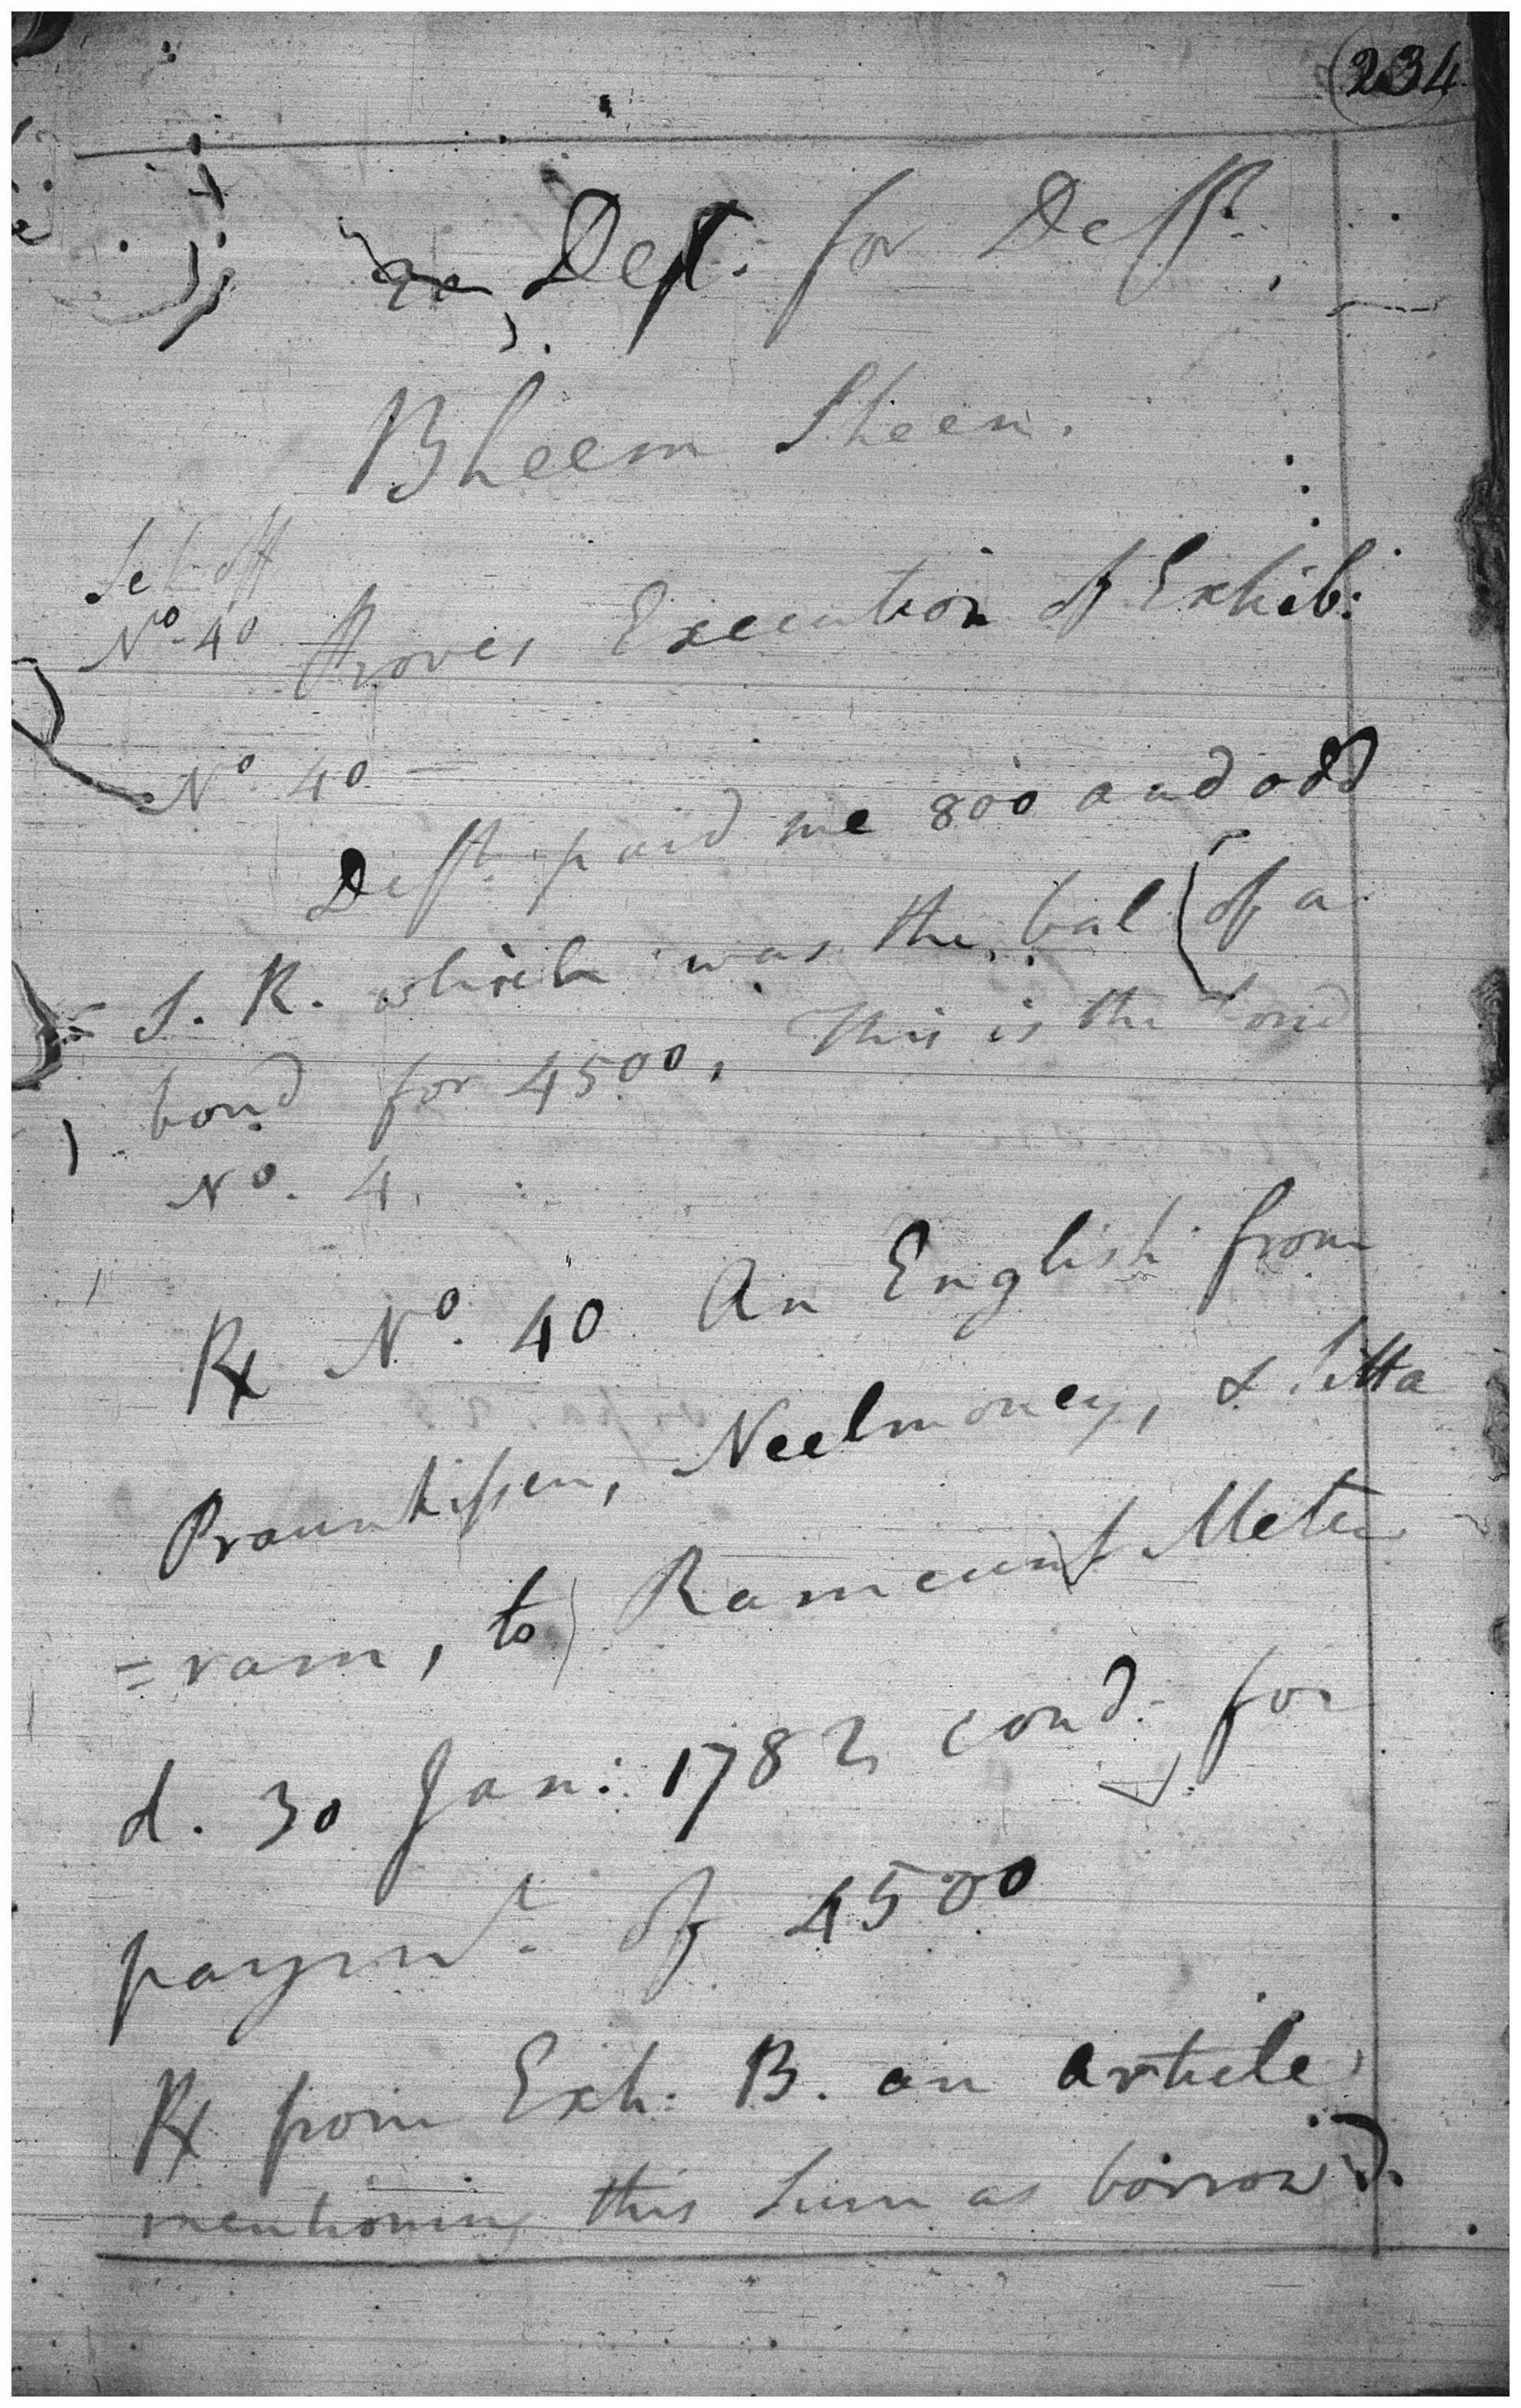 (234
Def.: for Defft.
Bheem Sheen.
Set off
No. 40
Proves Execution of Exhib:
No. 40 —
Defft. paid me 800 and odd
S. R. which was the bal (of a
bond for 4500, This is the bond
No. 4.
Rx No. 40 An English from
Praunkissen, Neelmoney, & Sitta
=ram, to Ramcunt Meter
d. 30 Jan: 1782 cond. for
paymt. of 4500
Rx from Exh: B. an article
mentioning this Sum as borrowd.